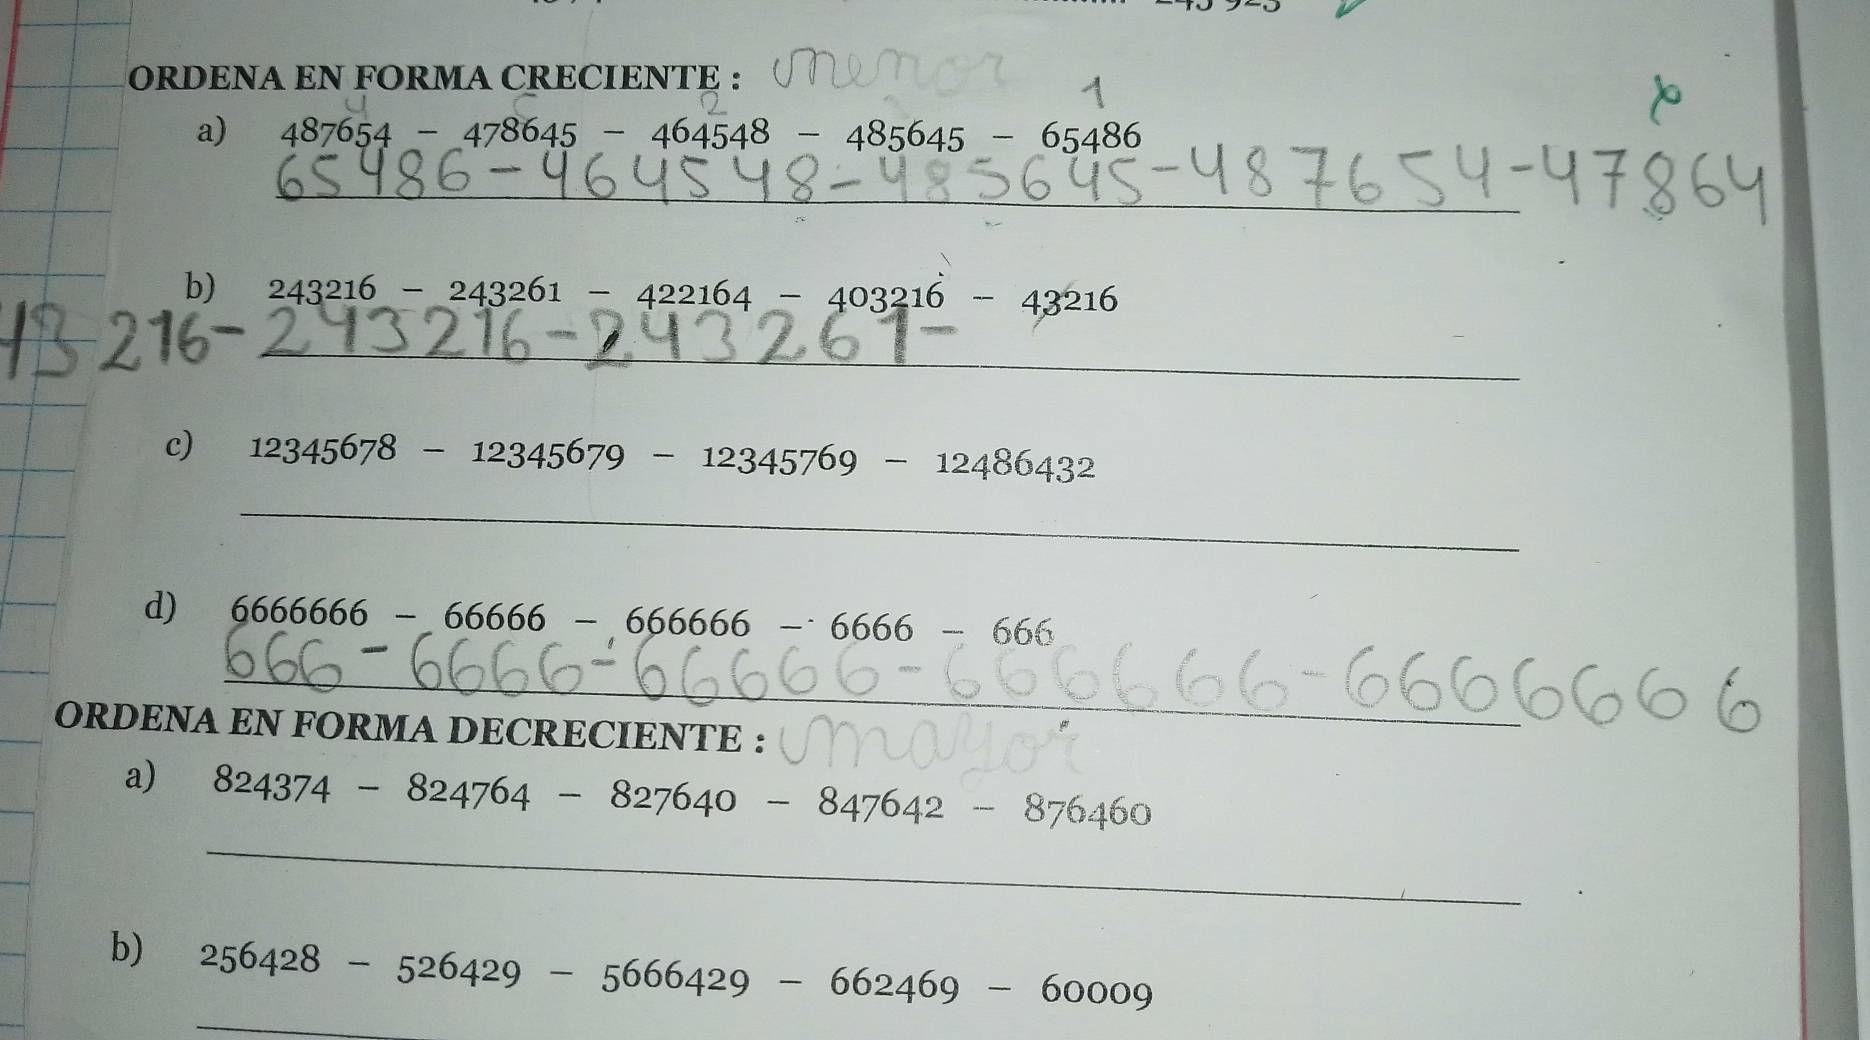 ORDENA EN FORMA CRECIENTE : menor
4 2 1
a) 487654 - 478645 - 464548 - 485645 - 65486
65486-464548-485645-487654-47864
b) 243216 - 243261 - 422164 - 403216 - 43216
43216-243216-243261-
c) 12345678 - 12345679 - 12345769 - 12486432
d) 6666666 - 66666 - 666666 - 6666 - 666
666-6666-66666-666666-6666666
ORDENA EN FORMA DECRECIENTE : mayor
a) 824374 - 824764 - 827640 - 847642 - 876460
b) 256428 - 526429 - 5666429 - 662469 - 60009